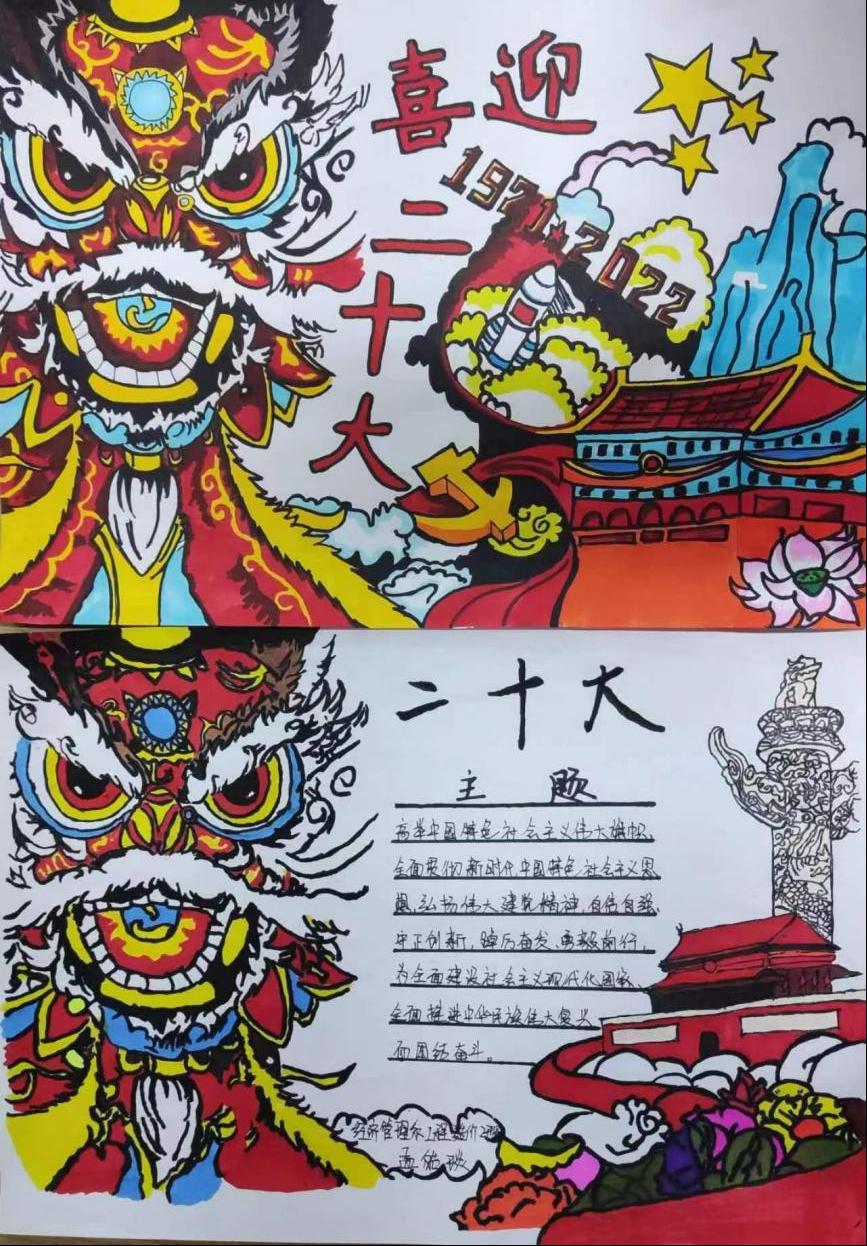 喜迎
二
十
大
1971.2022
二十大
主题
高举中国特色社会主义伟大旗帜、
全面贯彻新时代中国特色社会主义思
想,弘扬伟大建党精神,自信自强、
守正创新,踔厉奋发、勇毅前行,
为全面建设社会主义现代化国家、
全面推进中华民族伟大复兴
而团结奋斗。
经济管理系工程造价